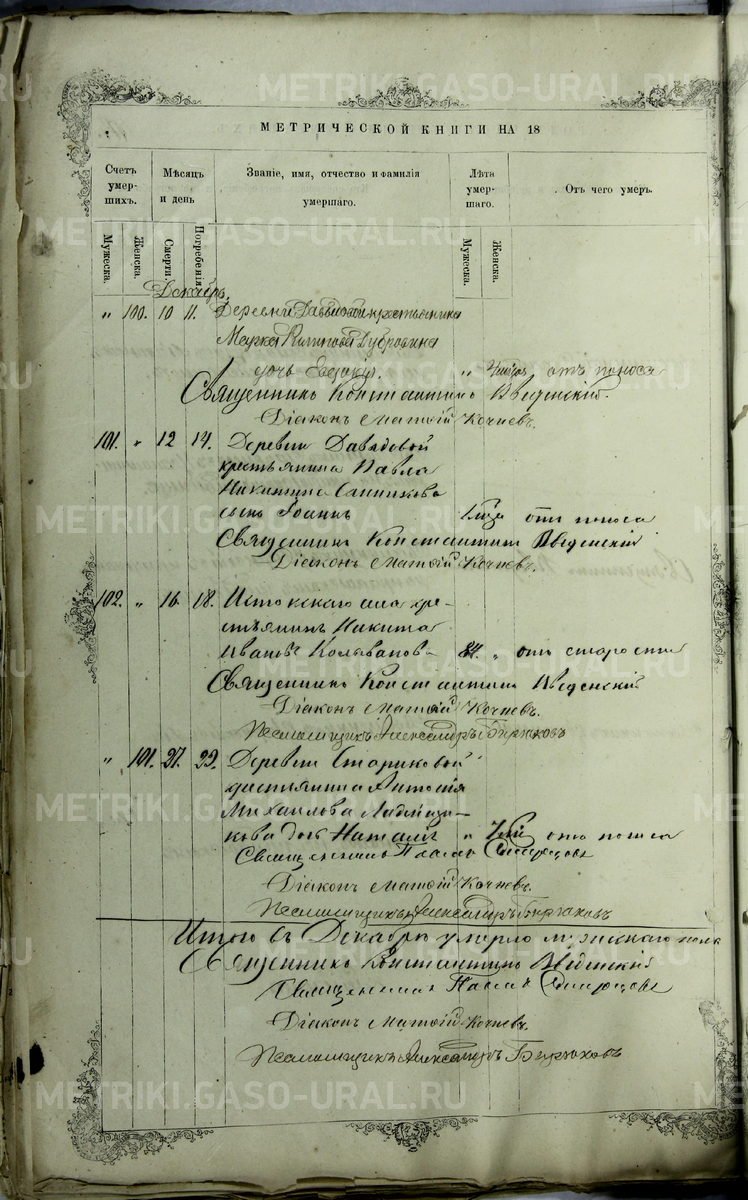 МЕТРИЧЕСКОЙ КНИГИ НА 18
Счетъ умер- шихъ.
Мѣсяцъ и день
Званіе, имя, отчество и фамилія умершаго.
Лѣта умер- шаго.
Отъ чего умеръ.
Мужеска. Женска. Смерти. Погребенія. Мужеска. Женска.
Декабрь
„ 100. 10 11. Деревни Давыдовой крестьянина
Марка Филипова Дубровина
дочь „ отъ поноса
Священникъ Константинъ Введенскій.
Діаконъ Матѳій Кочневъ.
101. „ 12 14. Деревни Давыдовой
крестьянина Павла
Никитина Санникова
сынъ Іоаннъ отъ поноса
Священникъ Константинъ Введенскій
Діаконъ Матѳій Кочневъ.
102. „ 16. 18. Истокскаго села кре-
стьянинъ Никита
Ивановъ Колывановъ 84. „ отъ старости
Священникъ Константинъ Введенскій
Діаконъ Матѳій Кочневъ.
Псаломщикъ Александръ Бирюковъ
„ 101. 27. 29. Деревни Стариковой
крестьянина Антонія
Михайлова
дочь Наталія „ отъ поноса
Священникъ Павелъ
Діаконъ Матѳій Кочневъ.
Псаломщикъ Александръ Бирюковъ
Итого въ Декабрѣ умерло мужескаго пола
Священникъ Константинъ Введенскій
Священникъ Павелъ
Діаконъ Матѳій Кочневъ.
Псаломщикъ Александръ Бирюковъ
METRIKI.GASO-URAL.RU